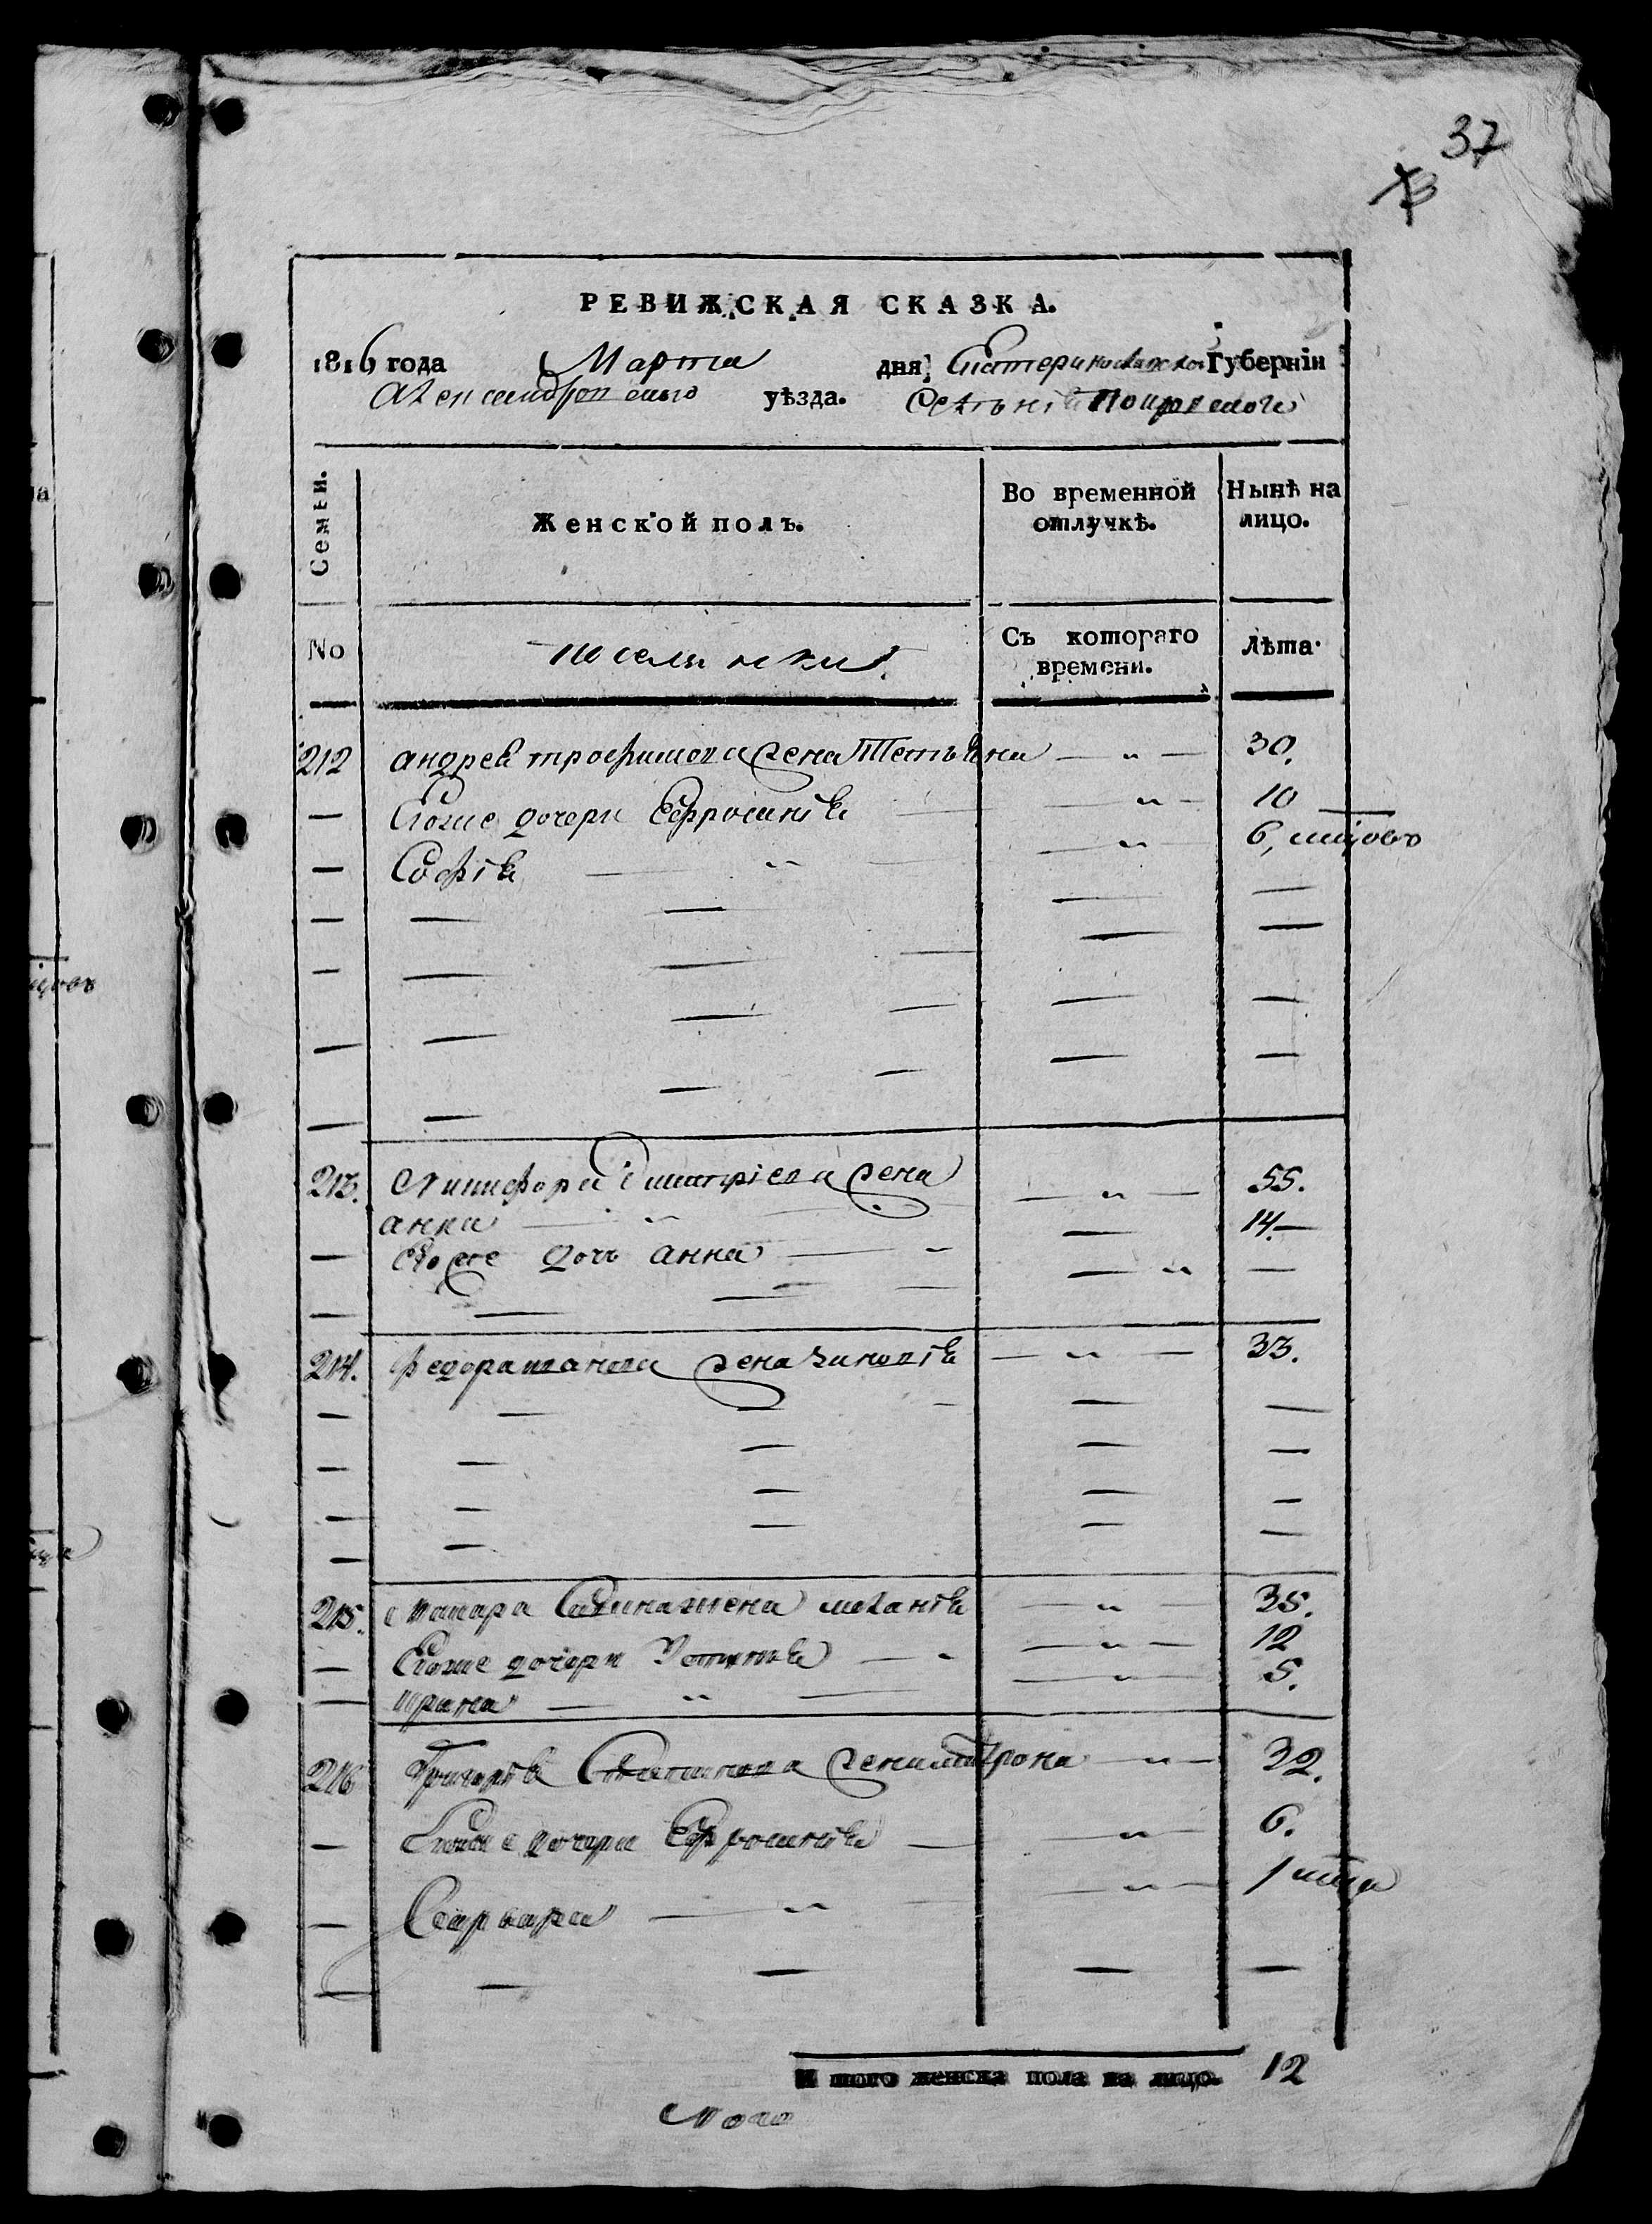 37
РЕВИЖСКАЯ СКАЗКА.
1816 года Марта дня, Екатеринославской Губерніи
Александровского уѣзда. Селенія Покровского
Семьи.
Женской полъ.
Во временной отлучкѣ.
Нынѣ на лицо.
No
поселянки.
Съ котораго времени.
Лѣта.
212 андрея трофимова жена Татьяна — „ — 30.
— Егоже дочери Ефросинія — „ — 10
— Софія — „ — „ 6, мцовъ
213. Никифора Дмитріева жена — „ — 55.
анна — „ — 14. —
— Егоже дочь анна — „ — „ —
214. федора иванова жена Зиновія — „ — 33.
215. Макара Савина жена меланія — „ — 35.
— Егоже дочери Устинія — „ — „ — 12
— ирина — „ — „ — 5.
216 Григорія жена матрона — „ — 32.
— Егоже дочери Ефросинія — „ — 6.
— Варвара — „ — „ — 1 мца
И того женска пола на лицо. 12